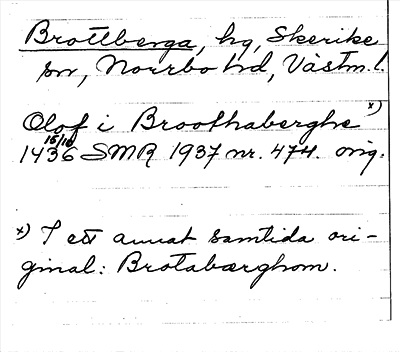 Brottberga, hg, Skerike
sn, Norrbo hd, Västm. l.
Olof i Broothaberghe x)
15/10
1436 SMR 1937 nr. 474. orig.
x) I ett annat samtida ori-
ginal: Brotabærghom.